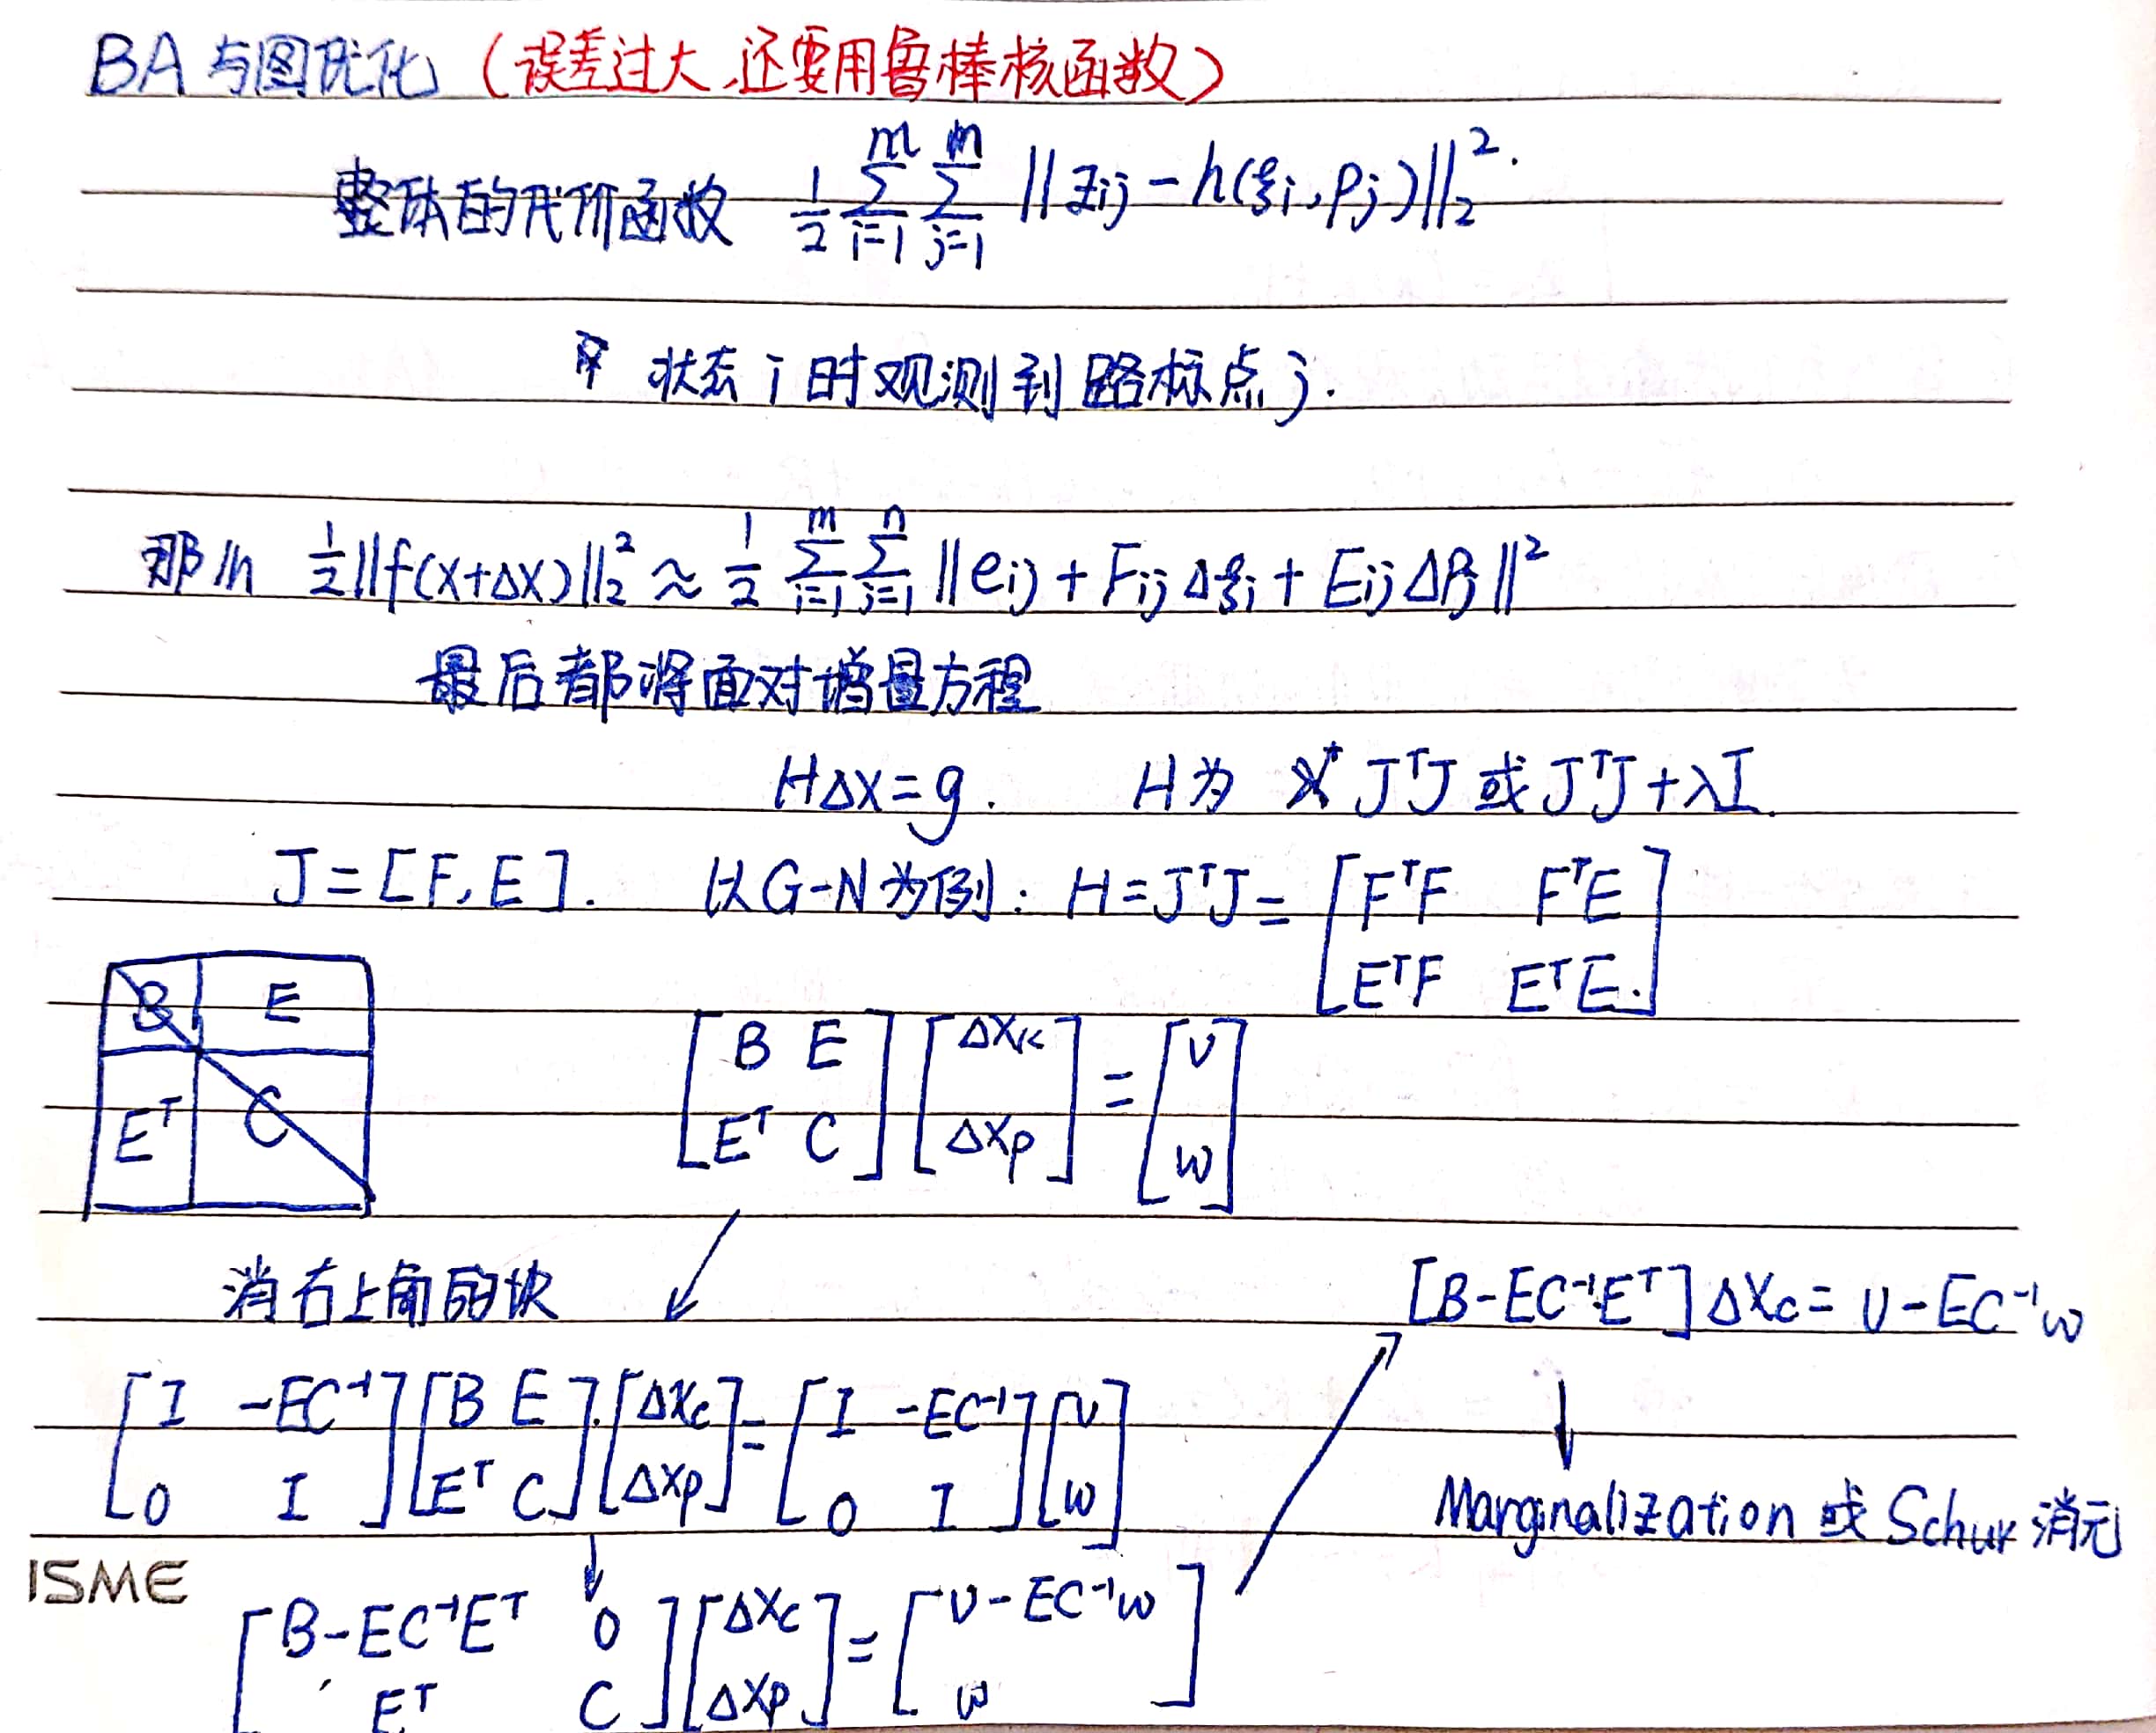 BA与图优化（误差过大,还要用鲁棒核函数）
整体的代价函数 1/2 ∑_{i=1}^{m} ∑_{j=1}^{n} ||z_ij - h(ξ_i, p_j)||_2^2.
状态i时观测到路标点j.
那么 1/2||f(x+Δx)||_2^2 ≈ 1/2 ∑_{i=1}^{m} ∑_{j=1}^{n} ||e_ij + F_ij Δξ_i + E_ij Δp_j||^2
最后都将面对增量方程
HΔx=g. H为 J^T J 或 J^T J+λI.
J=[F, E]. 以G-N为例: H=J^T J= [F^T F F^T E; E^T F E^T E.]
B E
E^T C
[B E; E^T C] [Δx_c; Δx_p] = [v; w]
消右上角的块
[B-EC^-1E^T] Δx_c = v-EC^-1w
[I -EC^-1; 0 I] [B E; E^T C] [Δx_c; Δx_p] = [I -EC^-1; 0 I] [v; w]
Marginalization 或 Schur 消元
ISME
[B-EC^-1E^T 0; E^T C] [Δx_c; Δx_p] = [v-EC^-1w; w]